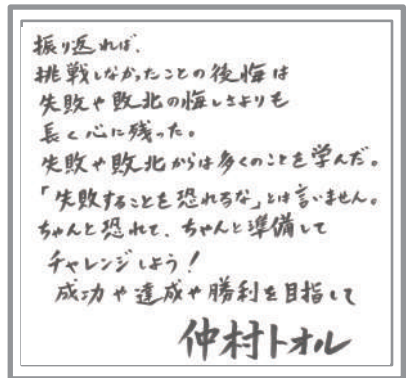 振り返れば、
挑戦しなかったことの後悔は
失敗や敗北の悔しさよりも
長く心に残った。
失敗や敗北からは多くのことを学んだ。
「失敗することを恐れるな」とは言いません。
ちゃんと恐れて、ちゃんと準備して
チャレンジしよう!
成功や達成や勝利を目指して
仲村トオル